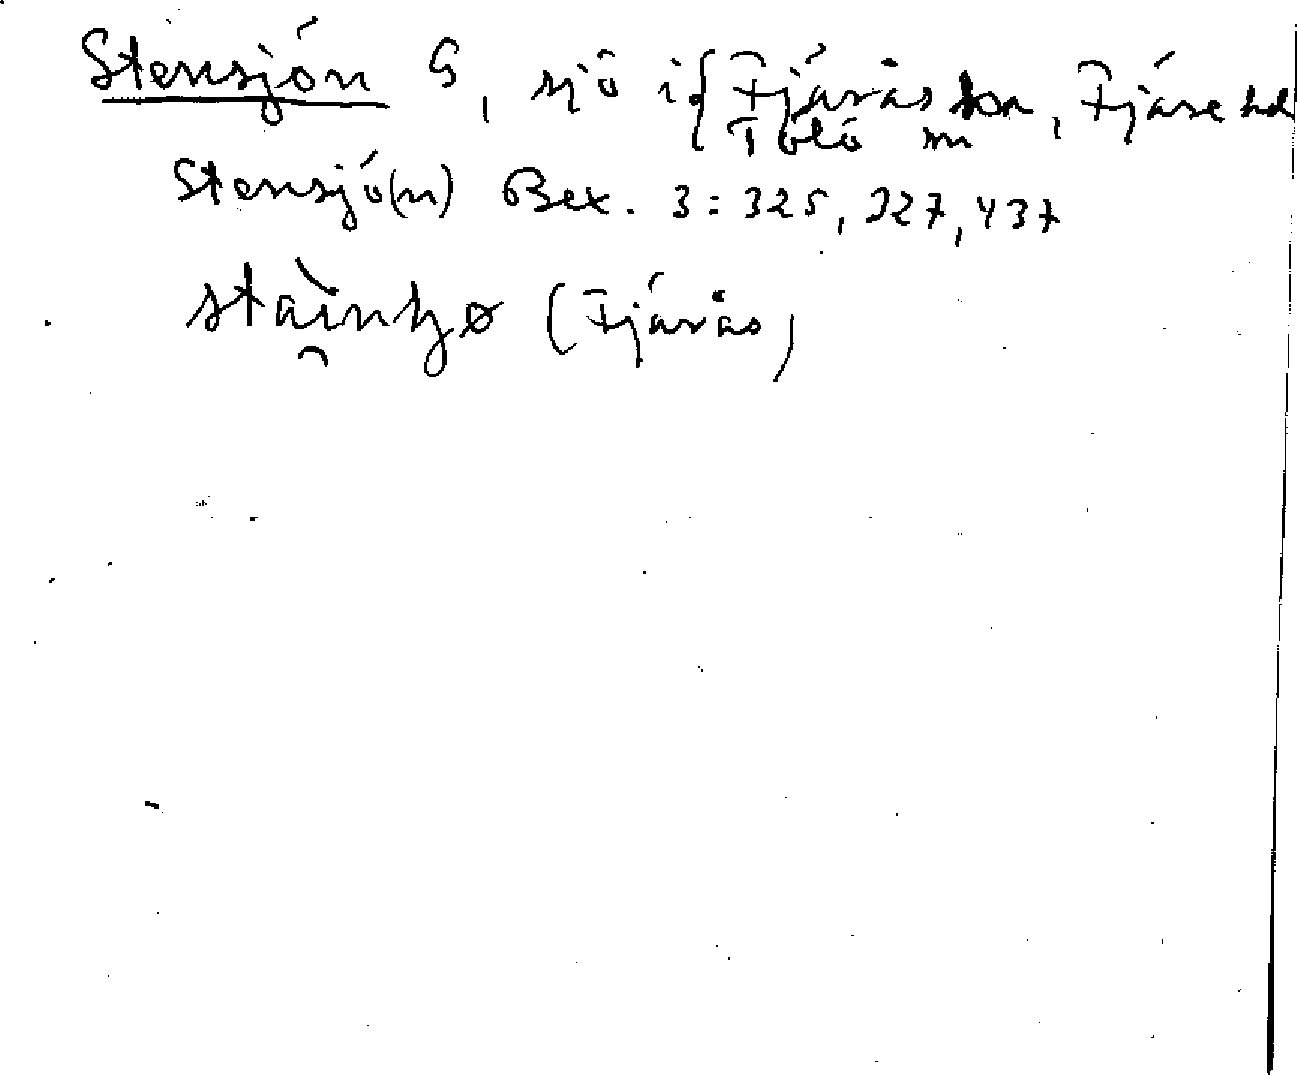 Stensjön G, sjö i { Fjärås sn, Fjäre hd
Tölö sn
Stensjö(n) Bex. 3: 325, 327, 437
(Fjärås)